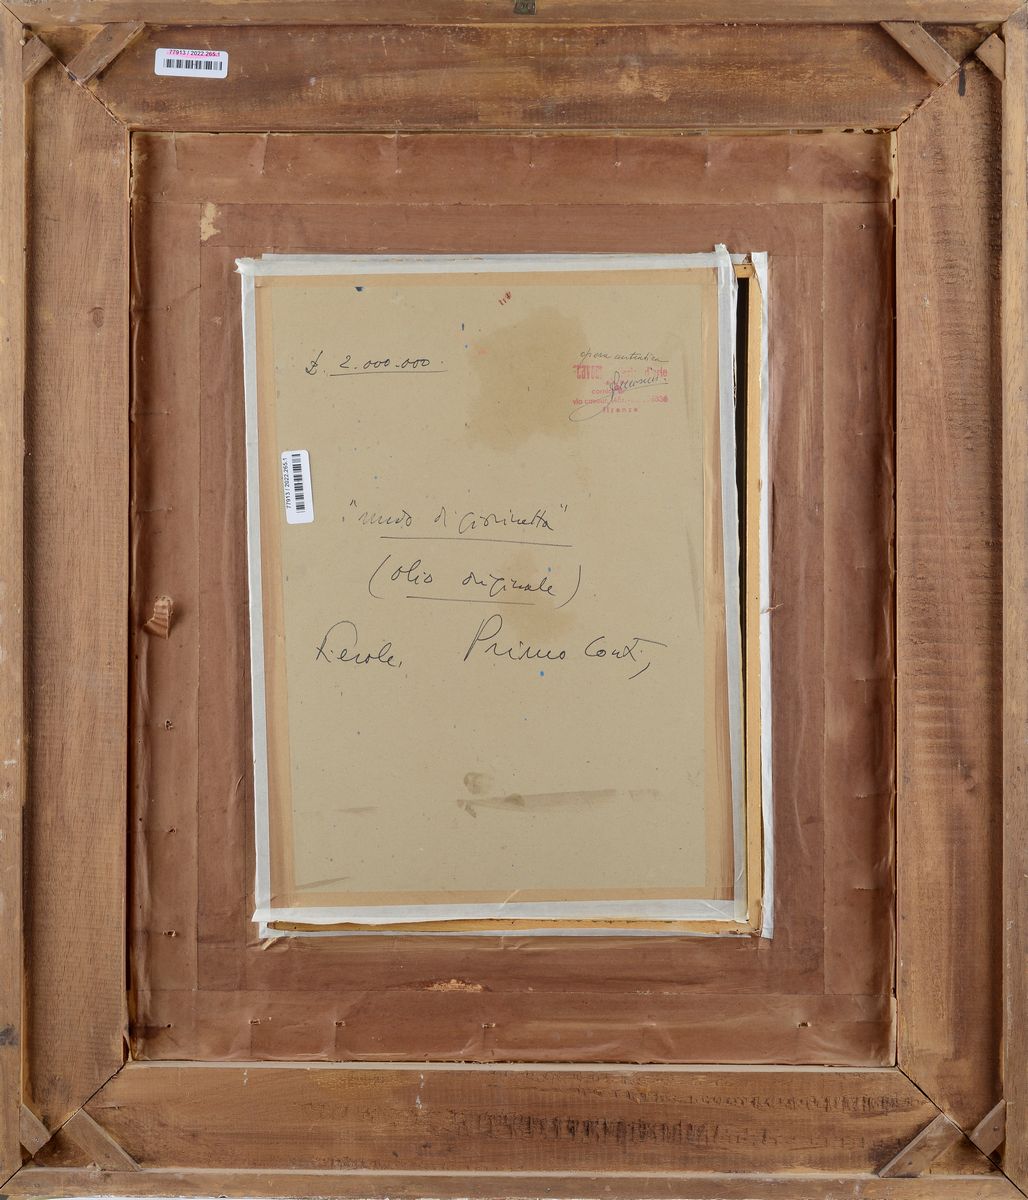 77913 / 2022.265.1
£. 2.000.000.
opera autentica
firenze
77913 / 2022.265.1
"nudo di giovinetta"
(olio originale)
Fiesole, Primo Conti,